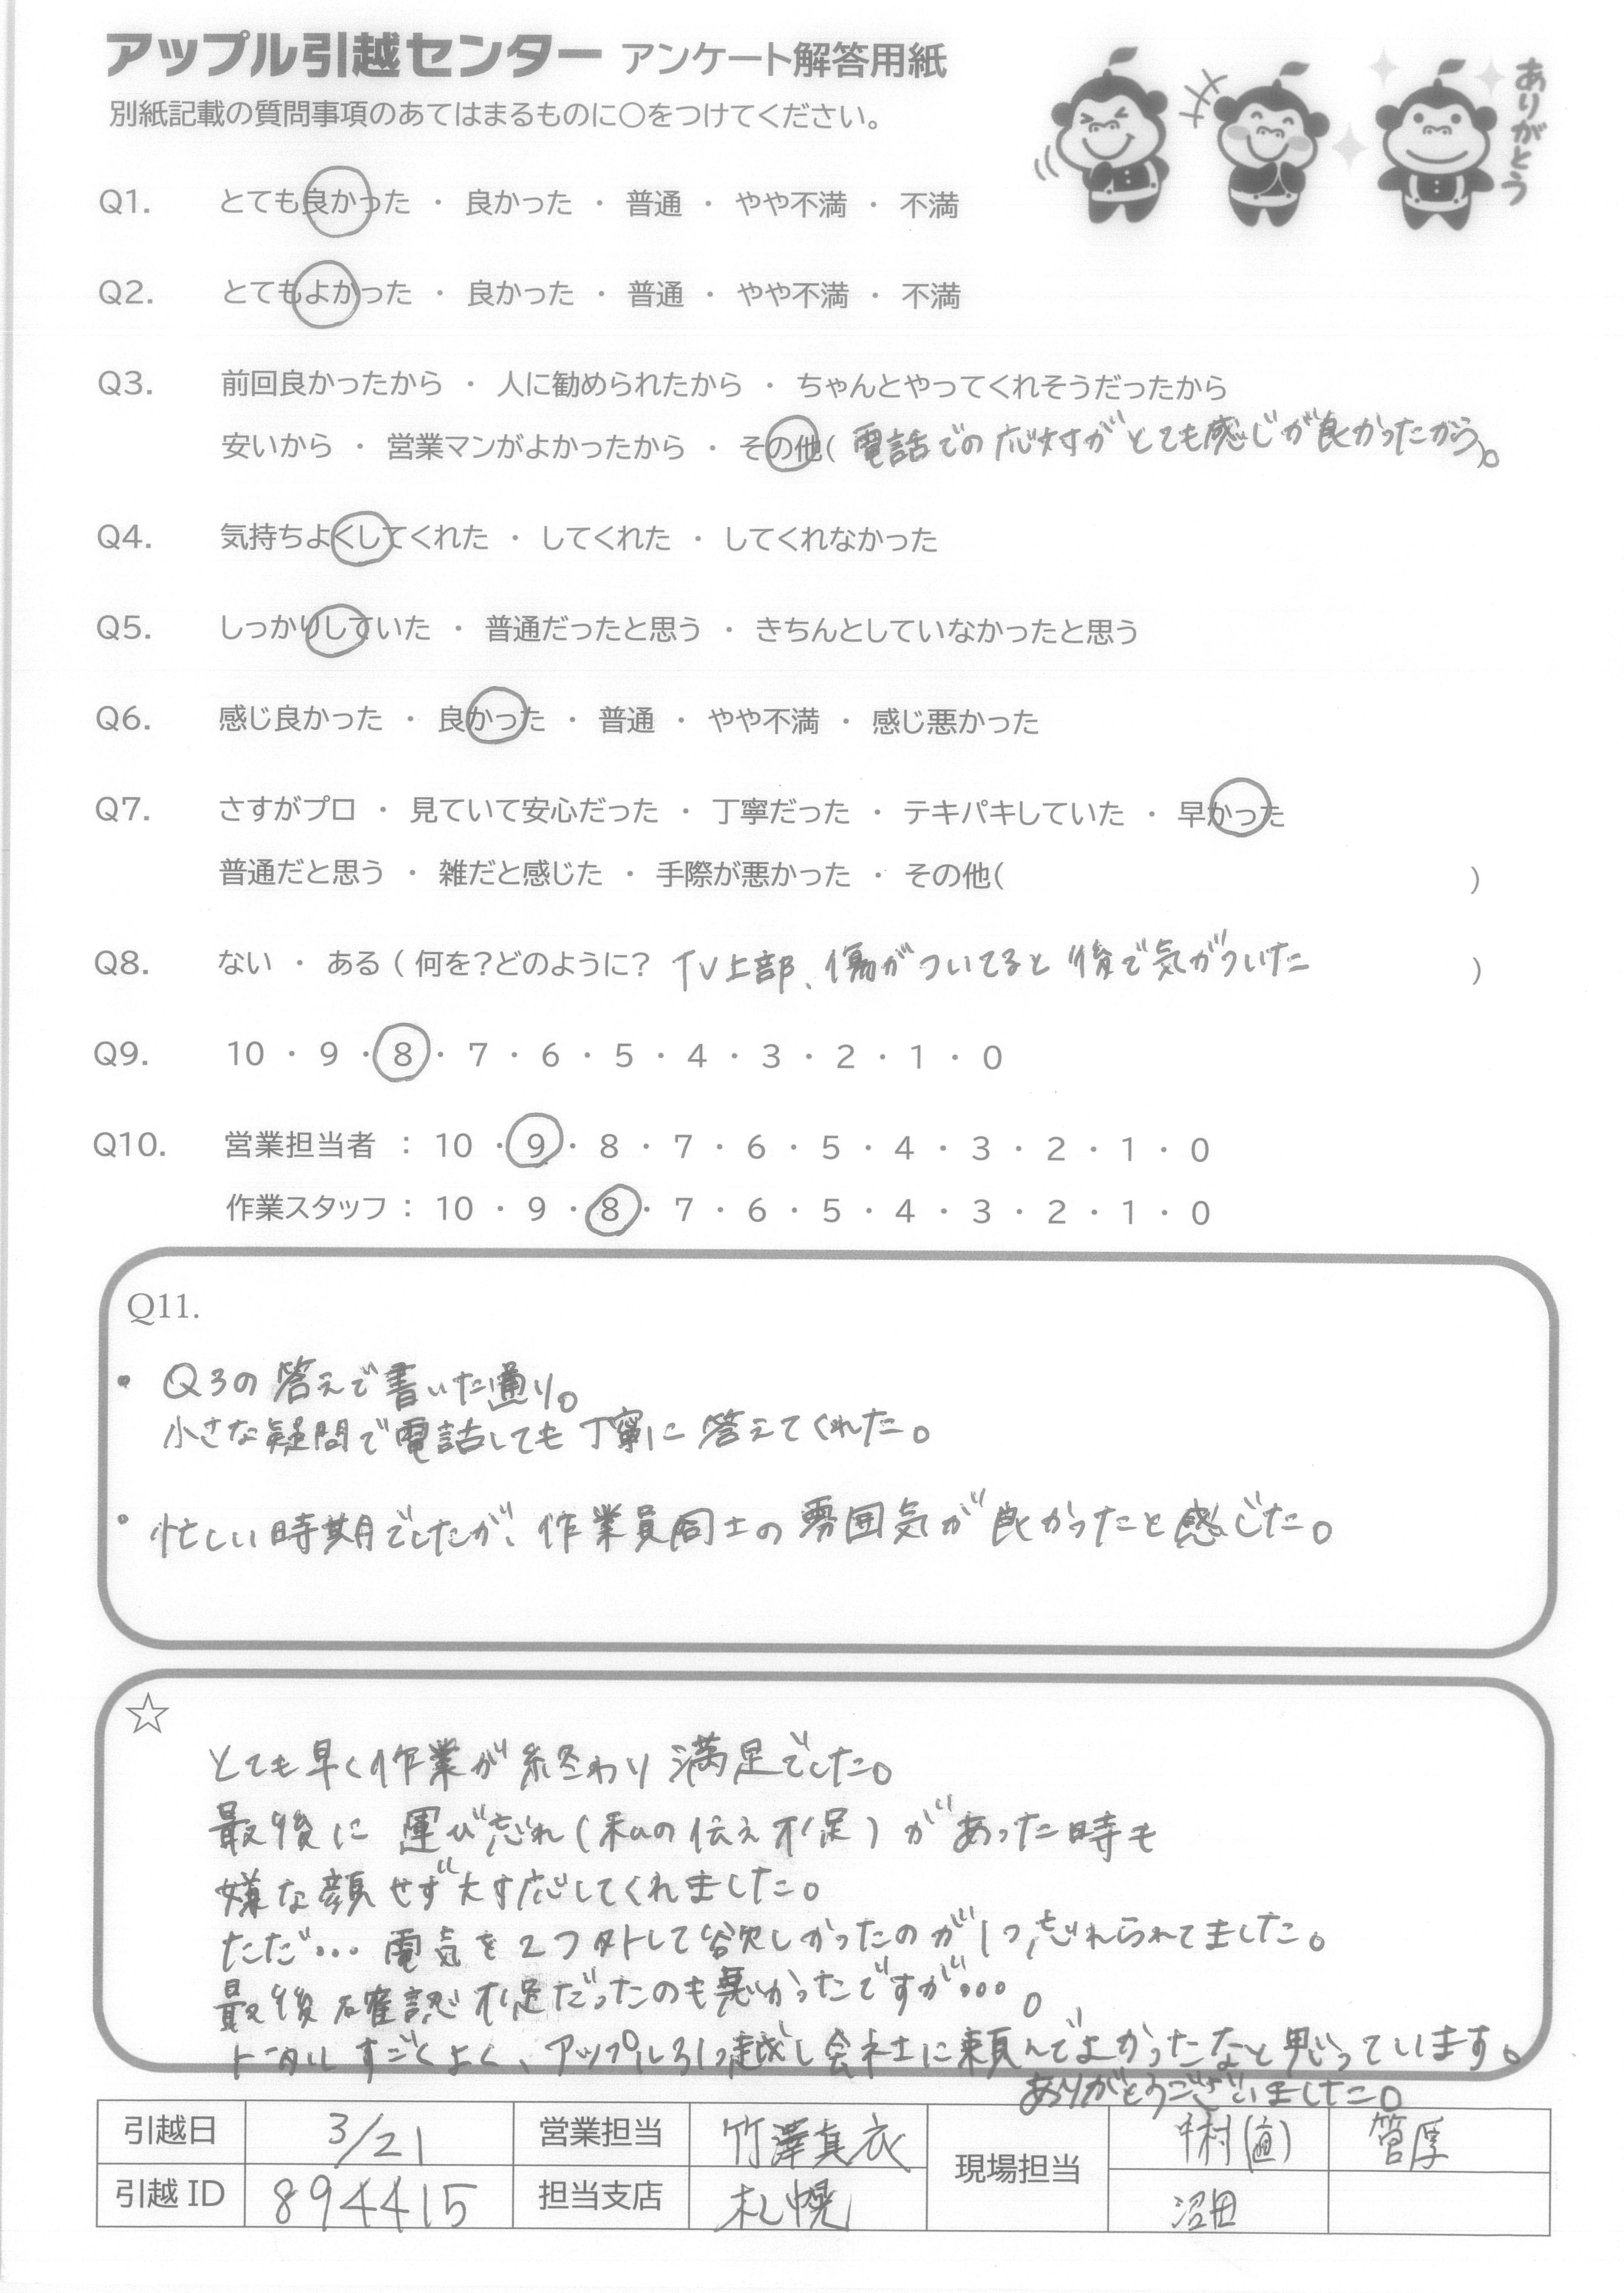 アップル引越センター アンケート解答用紙
別紙記載の質問事項のあてはまるものに○をつけてください。
ありがとう
Q1. とても良かった ・ 良かった ・ 普通 ・ やや不満 ・ 不満
Q2. とてもよかった ・ 良かった ・ 普通 ・ やや不満 ・ 不満
Q3. 前回良かったから ・ 人に勧められたから ・ ちゃんとやってくれそうだったから
安いから ・ 営業マンがよかったから ・ その他( 電話での応対がとても感じが良かったから。)
Q4. 気持ちよくしてくれた ・ してくれた ・ してくれなかった
Q5. しっかりしていた ・ 普通だったと思う ・ きちんとしていなかったと思う
Q6. 感じ良かった ・ 良かった ・ 普通 ・ やや不満 ・ 感じ悪かった
Q7. さすがプロ ・ 見ていて安心だった ・ 丁寧だった ・ テキパキしていた ・ 早かった
普通だと思う ・ 雑だと感じた ・ 手際が悪かった ・ その他( )
Q8. ない ・ ある ( 何を?どのように? TV上部、傷がついてると後で気がついた )
Q9. 10 ・ 9 ・ 8 ・ 7 ・ 6 ・ 5 ・ 4 ・ 3 ・ 2 ・ 1 ・ 0
Q10. 営業担当者 : 10 ・ 9 ・ 8 ・ 7 ・ 6 ・ 5 ・ 4 ・ 3 ・ 2 ・ 1 ・ 0
作業スタッフ : 10 ・ 9 ・ 8 ・ 7 ・ 6 ・ 5 ・ 4 ・ 3 ・ 2 ・ 1 ・ 0
Q11.
・ Q3の答えで書いた通り。
小さな疑問で電話しても丁寧に答えてくれた。
・ 忙しい時期でしたが、作業員同士の雰囲気が良かったと感じた。
☆
とても早く作業が終わり満足でした。
最後に運び忘れ(私の伝え不足)があった時も
嫌な顔せず対応してくれました。
ただ… 電気を2つ外して欲しかったのが1つ忘れられてました。
最後確認不足だったのも悪かったですが…。
トータルすごくよく、アップル引っ越し会社に頼んでよかったなと思っています。
ありがとうございました。
引越日 3/21 営業担当 竹澤真衣 現場担当 中村(直) 管厚
引越 ID 894415 担当支店 札幌 沼田